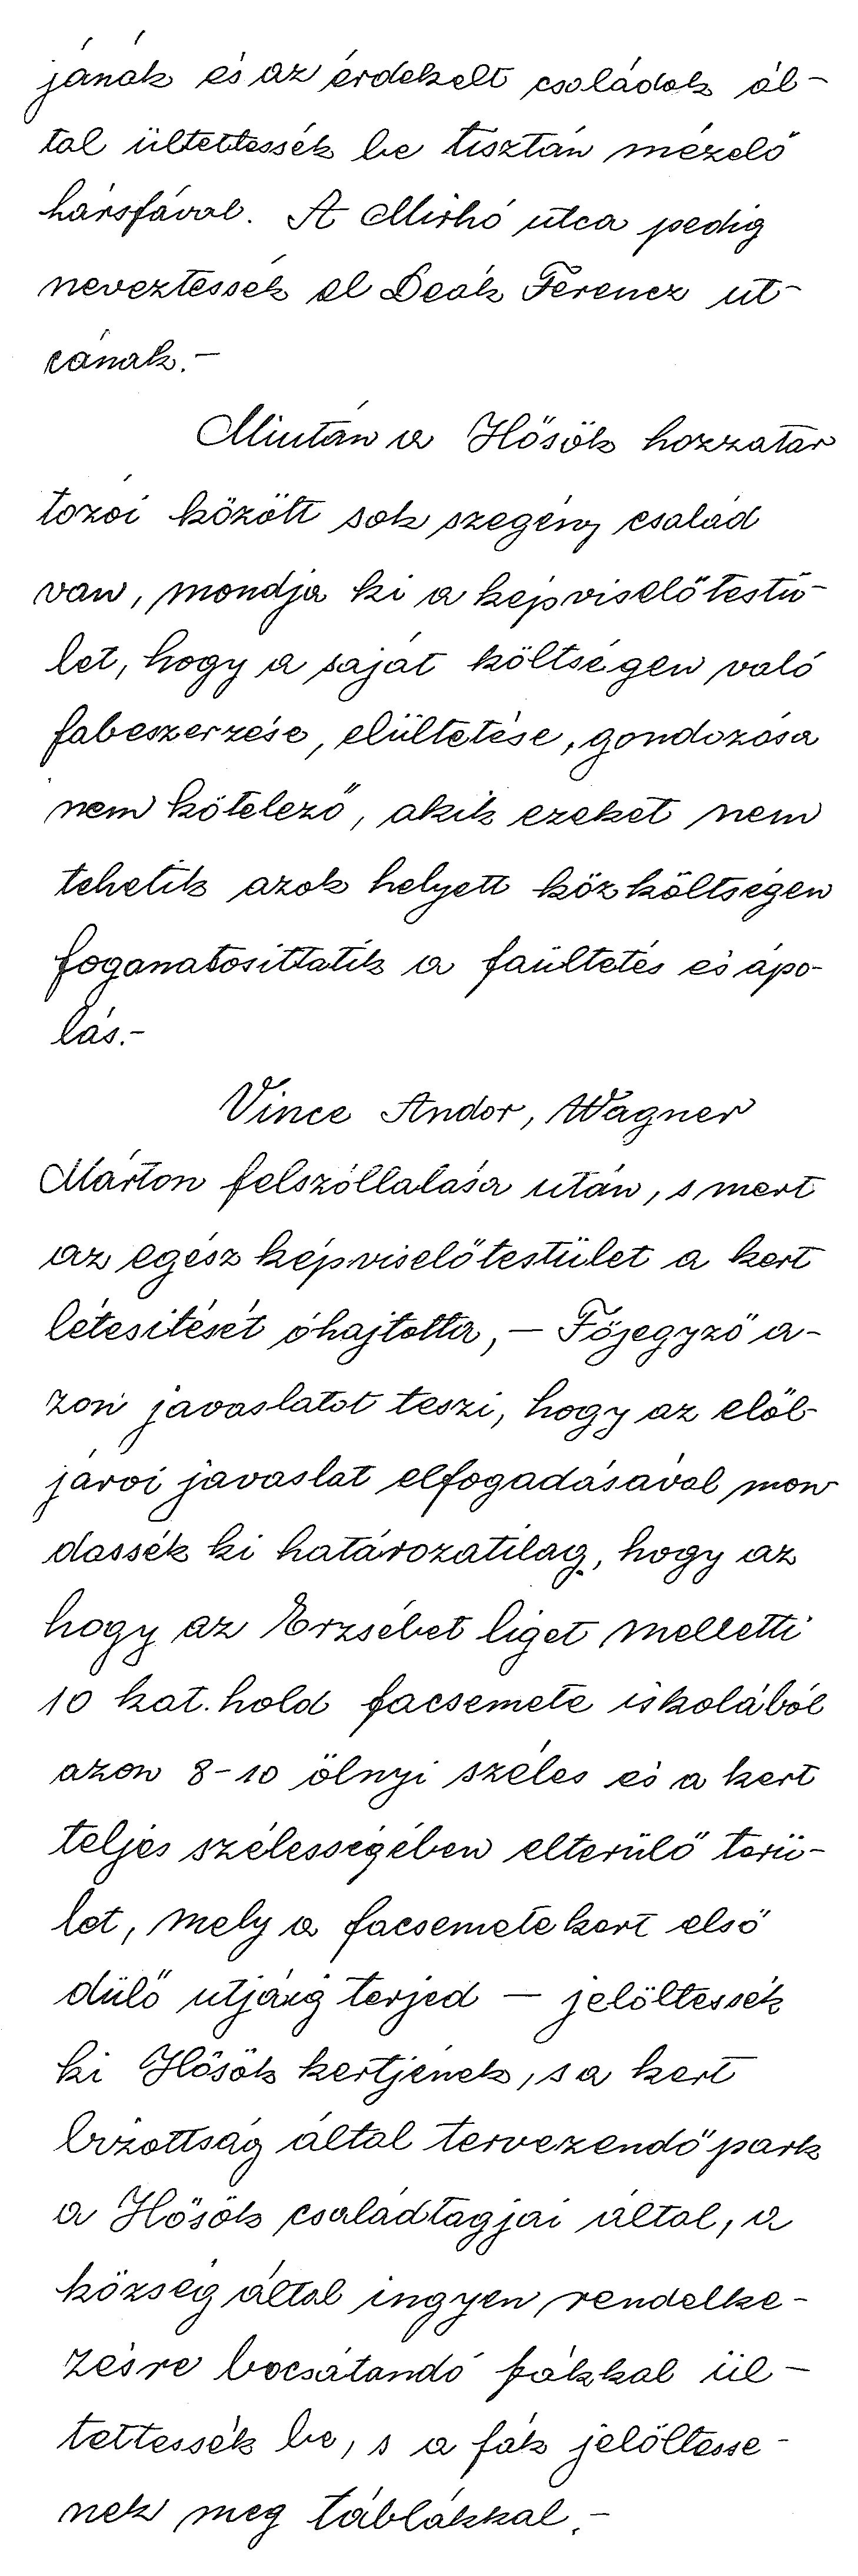 jának és az érdekelt családok ál-
tal ültettessék be tisztán mézelő
hársfával. A Mirhó utca pedig
neveztessék el Deák Ferencz ut-
cának.-
Miután a Hősök hozzátar
tozói között sok szegény család
van, mondja ki a képviselőtestü-
let, hogy a saját költségen való
fabeszerzése, elültetése, gondozása
nem kötelező, akik ezeket nem
tehetik azok helyett közköltségen
foganatosittatik a faültetés és ápo-
lás.-
Vince Andor, Wagner
Márton felszóllalása után, s mert
az egész képviselőtestület a kert
létesitését óhajtotta, — Főjegyző a-
zon javaslatot teszi, hogy az elöl-
járói javaslat elfogadásával mon
dassék ki határozatilag, hogy az
hogy az Erzsébet liget melletti
10 kat. hold facsemete iskolából
azon 8-10 ölnyi széles és a kert
teljes szélességében elterülő terü-
let, mely a facsemete kert első
dülő utjáig terjed — jelöltessék
ki Hősök kertjének, s a kert
bizottság által tervezendő park
a Hősök családtagjai által, a
község által ingyen rendelke-
zésre bocsátandó fákkal ül-
tettessék be, s a fák jelöltesse-
nek meg táblákkal.-